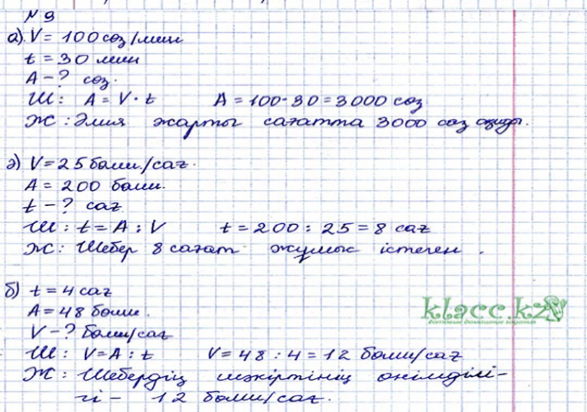 № 9
а) V = 100 сөз/мин
t = 30 мин
A - ? сөз.
Ш: A = V · t   A = 100 · 30 = 3000 сөз
Ж: Әлия жарты сағатта 3000 сөз оқиды.
ә) V = 25 бөлш/сағ.
A = 200 бөлш.
t - ? сағ
Ш: t = A : V   t = 200 : 25 = 8 сағ
Ж: Шебер 8 сағат жұмыс істеген.
б) t = 4 сағ
A = 48 бөлш.
V - ? бөлш/сағ
Ш: V = A : t   V = 48 : 4 = 12 бөлш/сағ
Ж: Шебердің шәкіртінің өнімділі-
гі - 12 бөлш/сағ.
klacc.kz